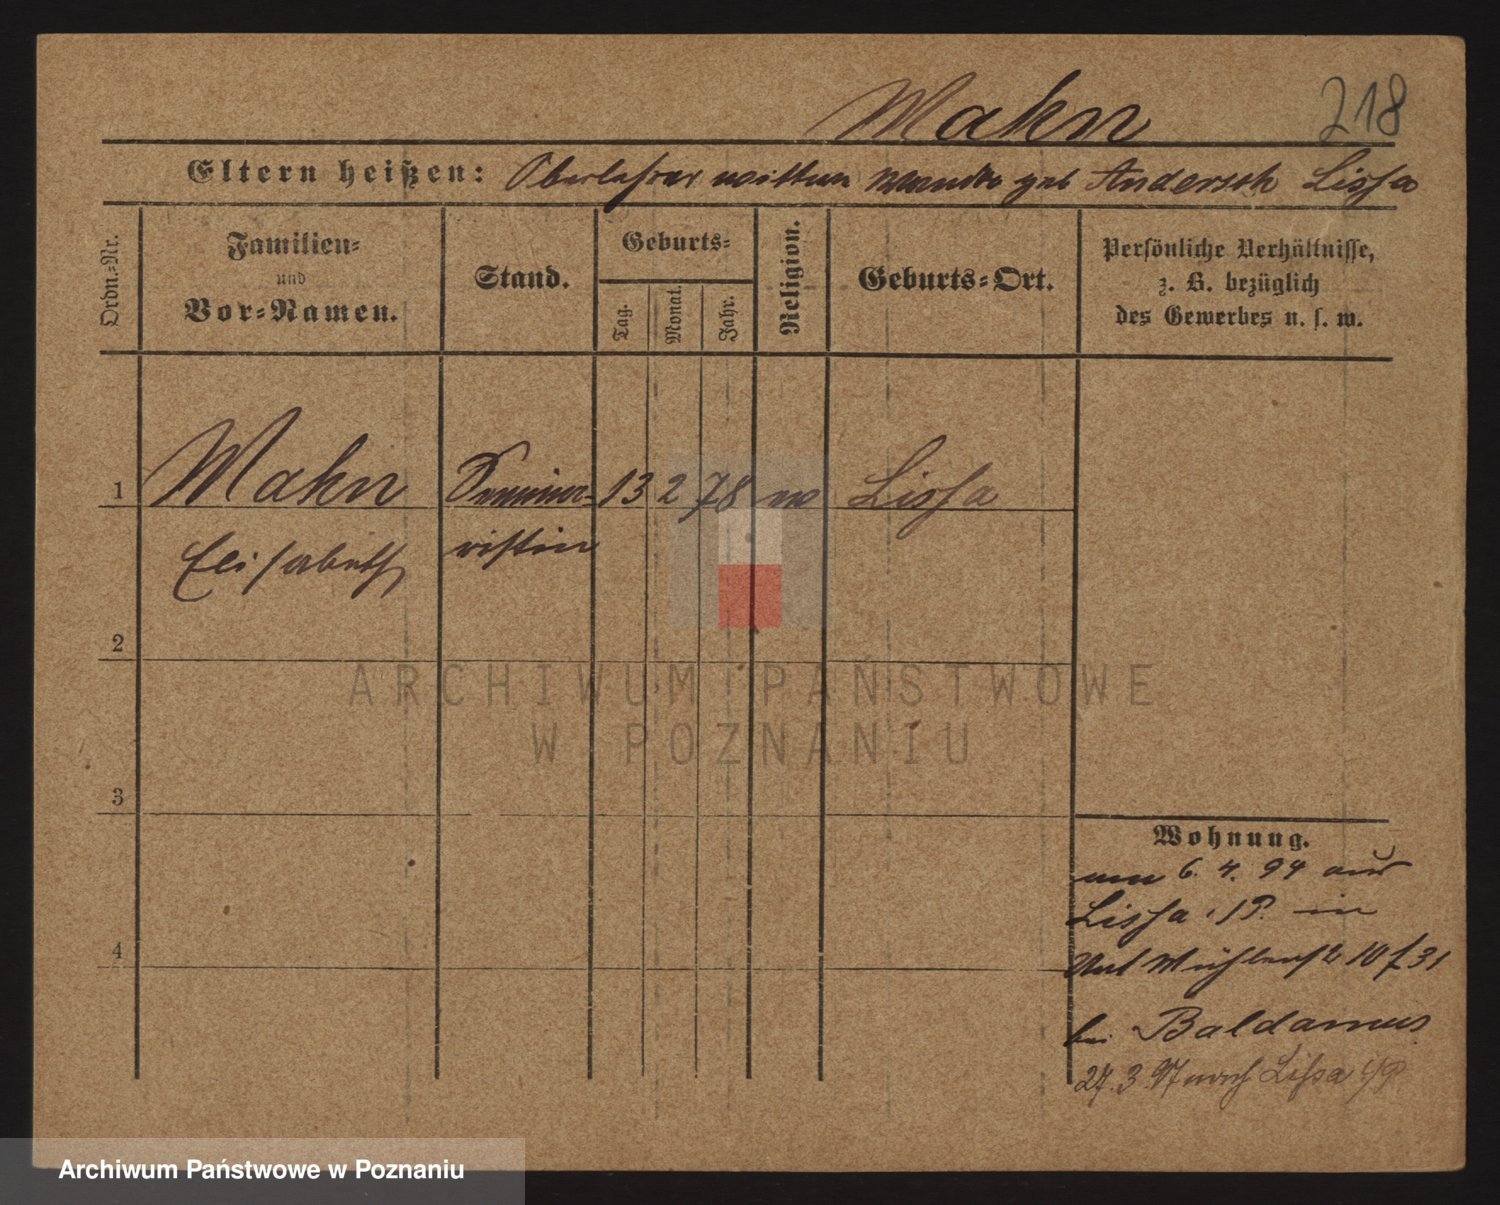 Mahn
218
Eltern heißen: Oberlehrer wittwe geb Andersch Lissa
Ordn.-Nr.
Familien-
und
Vor-Namen.
Stand.
Geburts-
Tag.
Monat.
Jahr.
Religion.
Geburts-Ort.
Persönliche Verhältnisse,
z. B. bezüglich
des Gewerbes u. s. w.
1
Mahn
Seminar-
13
2
78
Lissa
Elisabeth
ristin
2
ARCHIWUM PAŃSTWOWE
W POZNANIU
3
Wohnung.
6. 4. 94 aus
Lissa i/P. in
Mühlenstr 10 f 31
4
bei Baldamus
27. 3 97 nach Lissa i/P
Archiwum Państwowe w Poznaniu